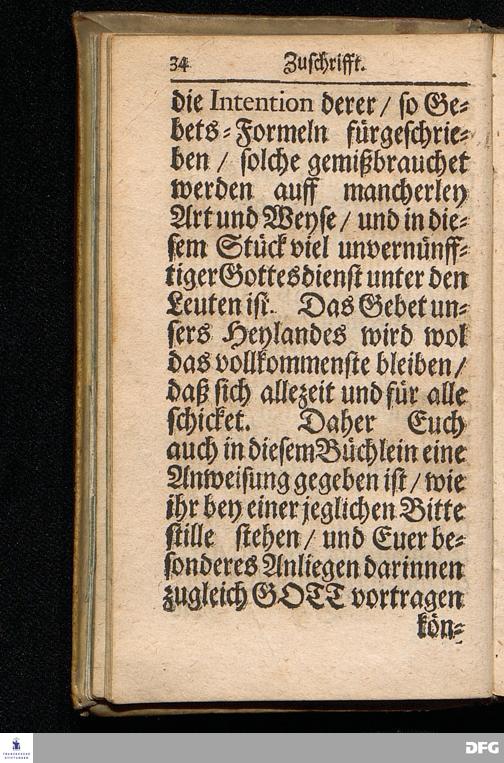 34 Zuschrifft.
die Intention derer / so Ge⸗
bets⸗Formeln fürgeschrie⸗
ben / solche gemißbrauchet
werden auff mancherley
Art und Weyse / und in die⸗
sem Stück viel unvernünff⸗
tiger Gottesdienst unter den
Leuten ist. Das Gebet un⸗
sers Heylandes wird wol
das vollkommenste bleiben /
daß sich allezeit und für alle
schicket. Daher Euch
auch in diesem Büchlein eine
Anweisung gegeben ist / wie
ihr bey einer jeglichen Bitte
stille stehen / und Euer be⸗
sonderes Anliegen darinnen
zugleich GOTT vortragen
kön⸗
FRANCKESCHE
STIFTUNGEN
DFG